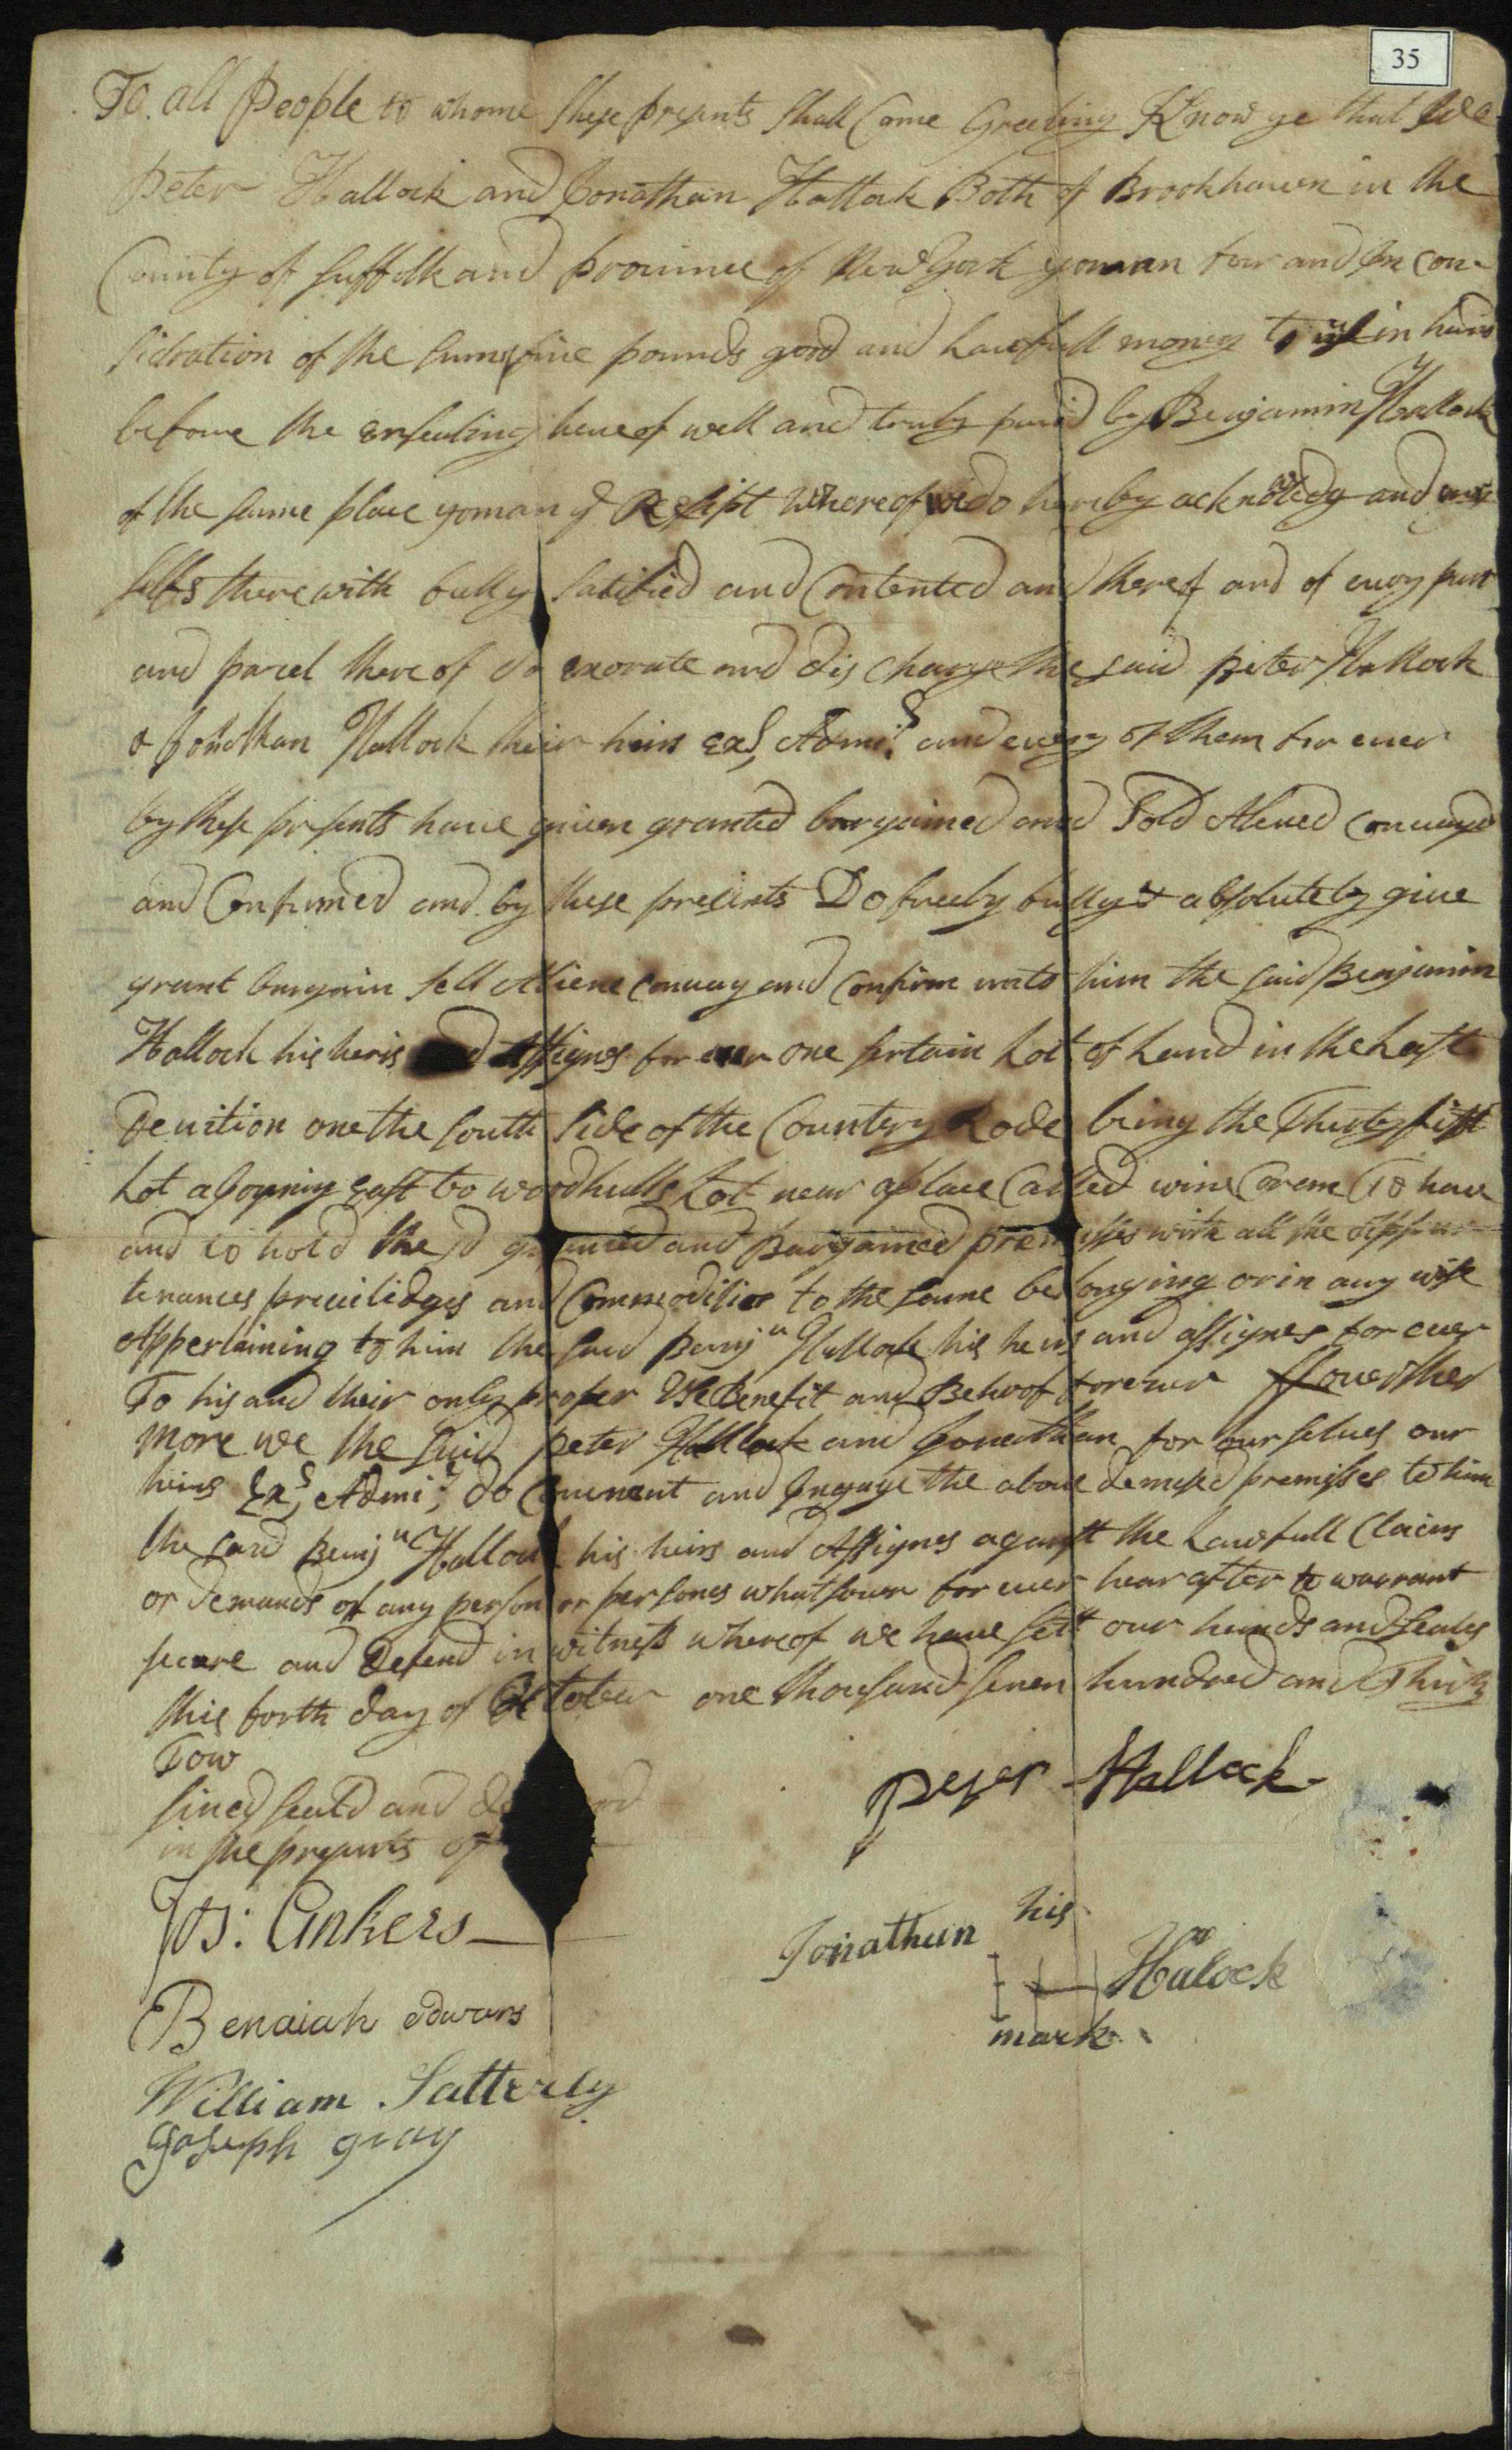 35
To all People to whome these presents shall Come Greeting Know ye that We
Peter Hallock and Jonathan Hallock Both of Brookhaven in the
County of Suffolk and province of New York yoman for and In con
sidration of the sum of five pounds good and Lawfull money to us in hand
before the ensealing hereof well and truly paid by Benjamin Hallock
of the same place yoman ye Resipt Whereof we do hereby acknowledg and our
selfs therewith fully satisfied and Contented and thereof and of every part
and parcel there of do exorate and dis charge the said peter Hallock
& Jonathan Hallock their heirs exs, Admis and every of them for ever
by these presents have given granted bargained and Sold Aliened conuayd
and Confirmed and by these presents Do freely fully & absolutely give
grant bargain sell Aliene conuay and confirm unto him the said Benjamin
Hallock his heris and assignes for ever one sertain Lot of Land in the Last
Deuition one the south side of the Country Rode being the Thirty fifth
Lot ajoyning East to woodhulls Lot near a place Called wine Corem To have
and to hold the sd granted and Bargained premisses with all the Appur
tenances preuilidges and Commodities to the same belonging or in any wise
Appertaining to him the said Benjn Hallock his heirs and assignes for ever
To his and their only proper Use Benefit and Behoof forever ffouerther
more we the said peter Hallock and Jonathan for our selues our
heirs Exs, Admis, do Couenant and Ingage the above demised premisses to him
the said Benjn Hallock his heirs and Assignes against the Lawfull Claims
or demands of any person or persones whatsouer for euer hear after to warrant
secure and Defend in witness whereof we have sett our hands and seals
this forth day of October one thousand seven hundred and Thirty
Tow
sined seald and
in the presents of
Peter Hallock
Jos: Ankers
his
Jonathan Halock
mark
Benaiah Edwars
William Satterly
Joseph gray